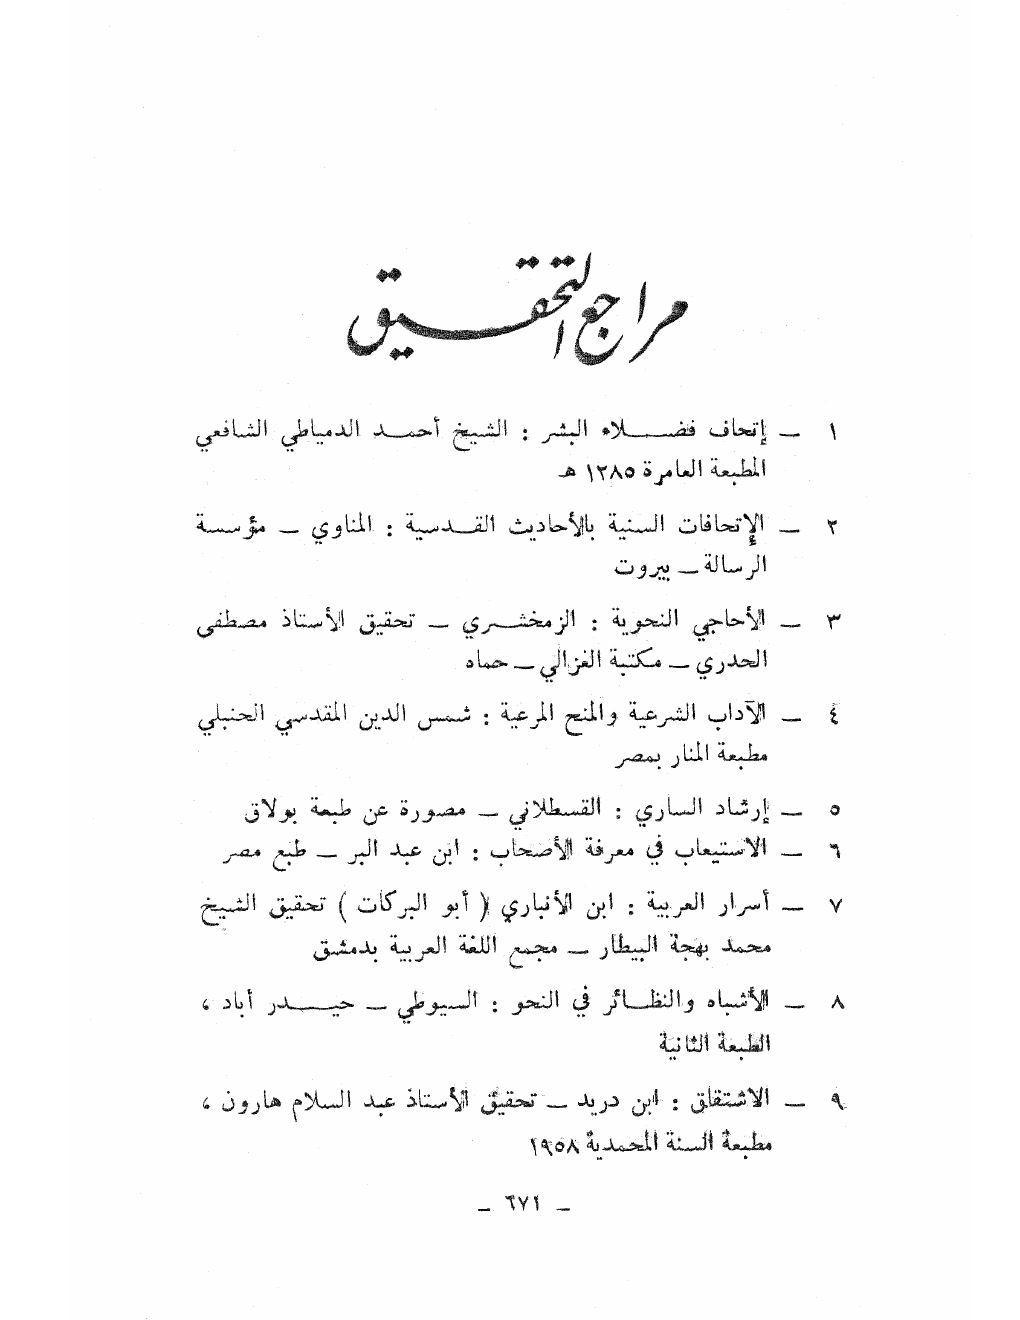 مراجع التحقيق
١ ــ إتحاف فضلاء البشر : الشيخ أحمد الدمياطي الشافعي
المطبعة العامرة ١٢٨٥ هـ
٢ ــ الإتحافات السنية بالأحاديث القدسية : المناوي ــ مؤسسة
الرسالة ــ بيروت
٣ ــ الأحاجي النحوية : الزمخشري ــ تحقيق الأستاذ مصطفى
الحدري ــ مكتبة الغزالي ــ حماه
٤ ــ الآداب الشرعية والمنح المرعية : شمس الدين المقدسي الحنبلي
مطبعة المنار بمصر
٥ ــ إرشاد الساري : القسطلاني ــ مصورة عن طبعة بولاق
٦ ــ الاستيعاب في معرفة الأصحاب : ابن عبد البر ــ طبع مصر
٧ ــ أسرار العربية : ابن الأنباري ( أبو البركات ) تحقيق الشيخ
محمد بهجة البيطار ــ مجمع اللغة العربية بدمشق
٨ ــ الأشباه والنظائر في النحو : السيوطي ــ حيدر أباد ،
الطبعة الثانية
٩ ــ الاشتقاق : ابن دريد ــ تحقيق الأستاذ عبد السلام هارون ،
مطبعة السنة المحمدية ١٩٥٨
ــ ٦٧١ ــ